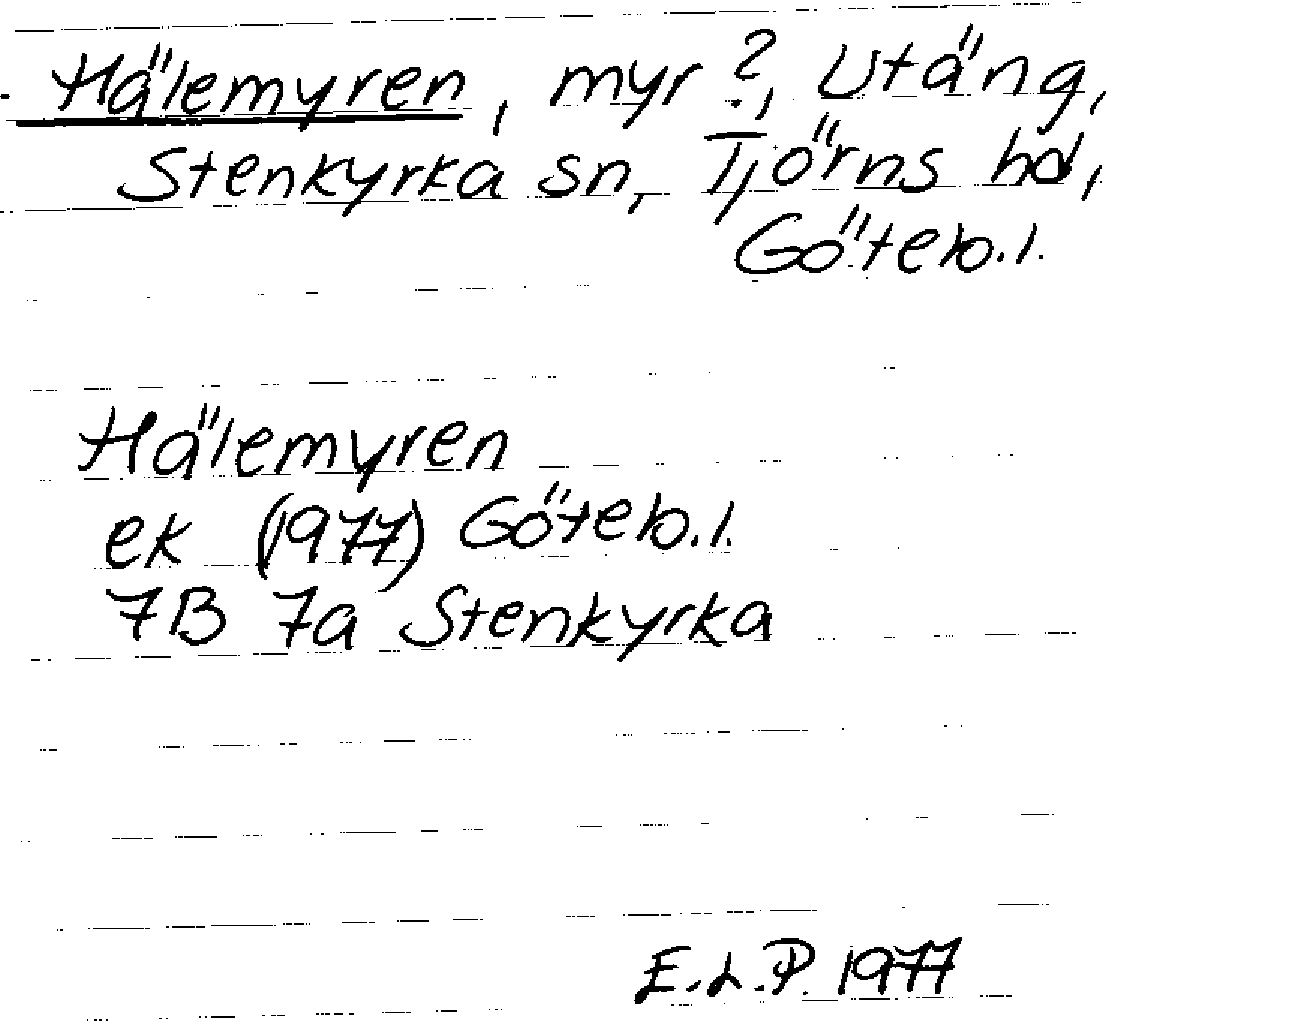 Hälemyren, myr ?, Utäng,
Stenkyrka sn, Tjörns hd,
Göteb.l.
Hälemyren
ek (1977) Göteb.l.
7B 7a Stenkyrka
E.L.P. 1977